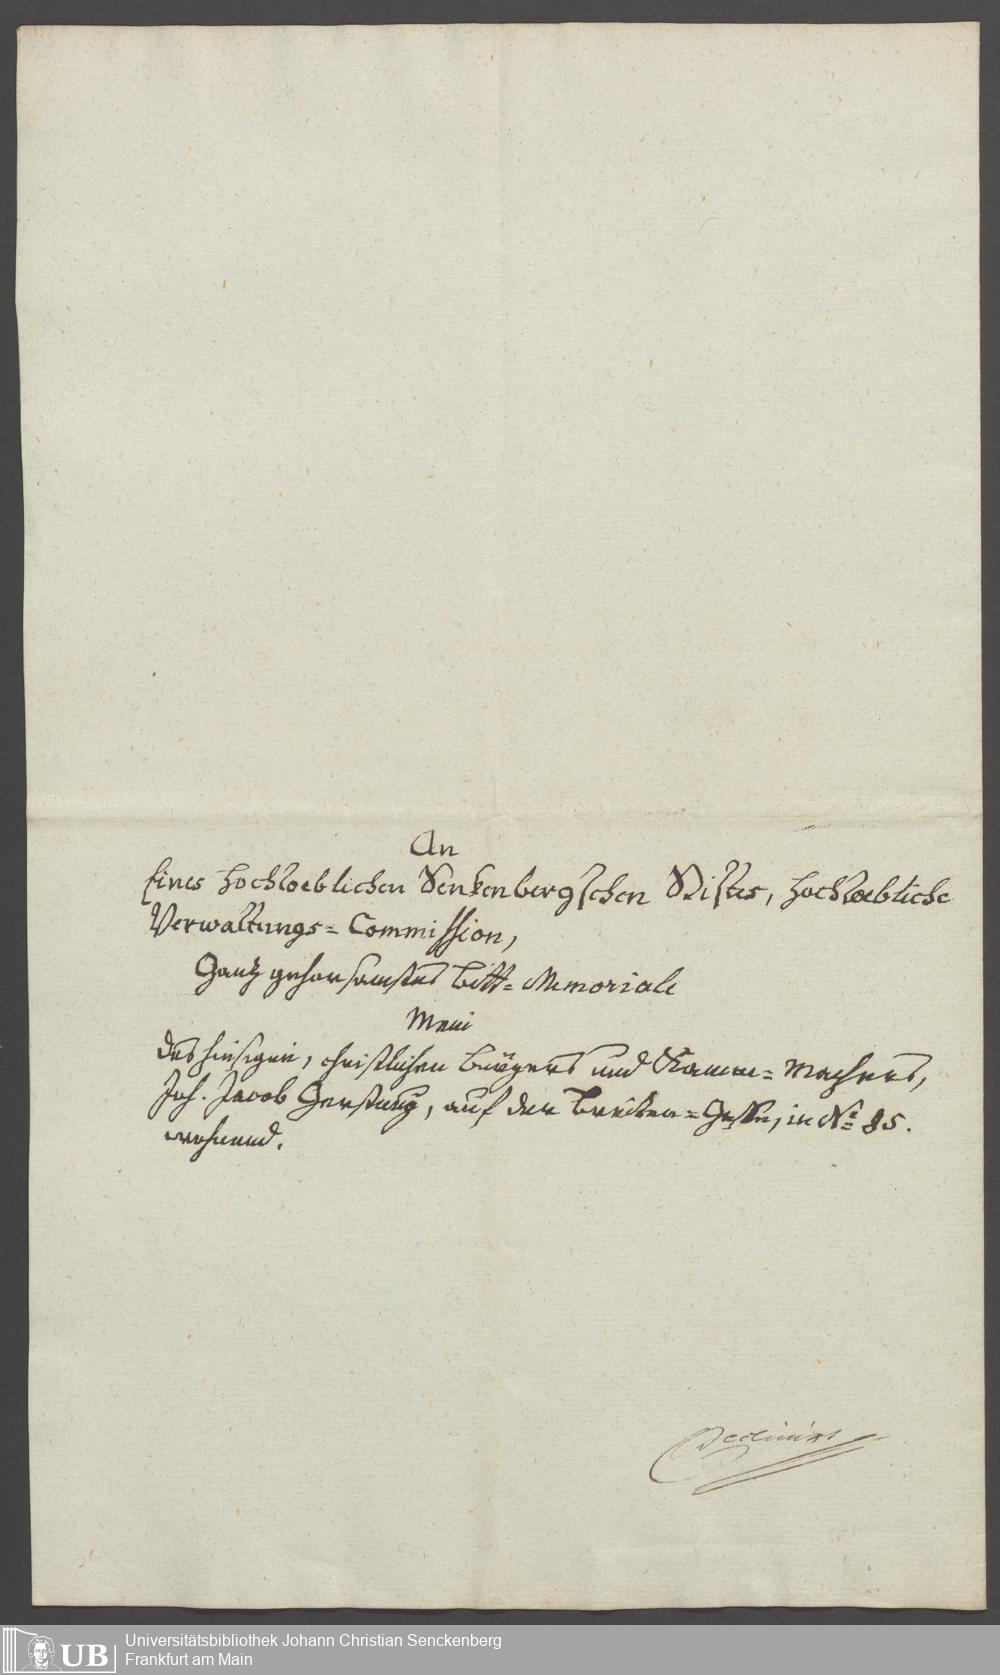 An
Eines Hochloeblichen Senkenbergschen Stiftes, Hochloebliche
Verwaltungs= Commission,
Ganz gehorsamstes Bitt= Memoriale
Mein
des hiesigen, christlichen Bürgers und Kamm= Machers,
Joh. Jacob Gerstung, auf der Breiten= Gasse, in No 85.
wohnend.
Universitätsbibliothek Johann Christian Senckenberg
UB Frankfurt am Main